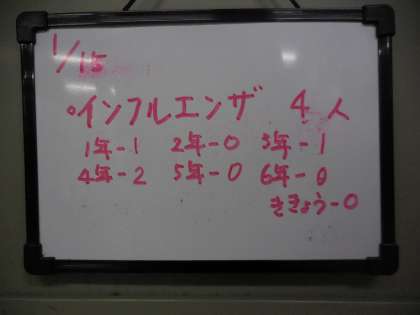 1/15
・インフルエンザ 4人
1年-1 2年-0 3年-1
4年-2 5年-0 6年-0
ききょう-0